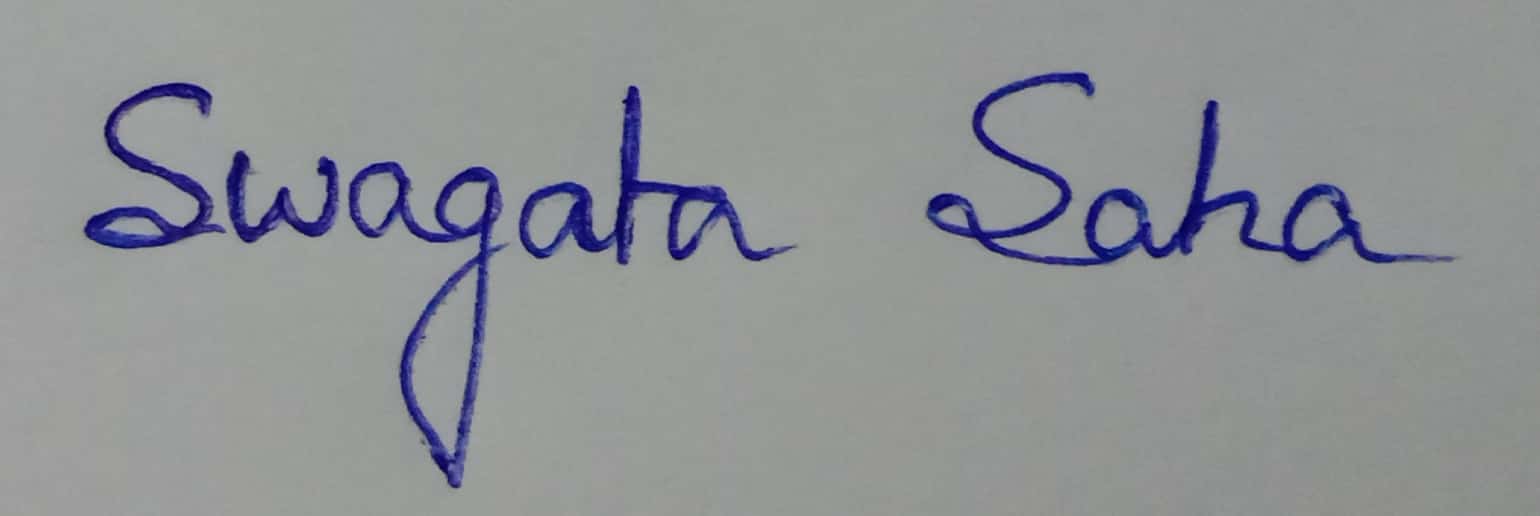 Swagata Saha